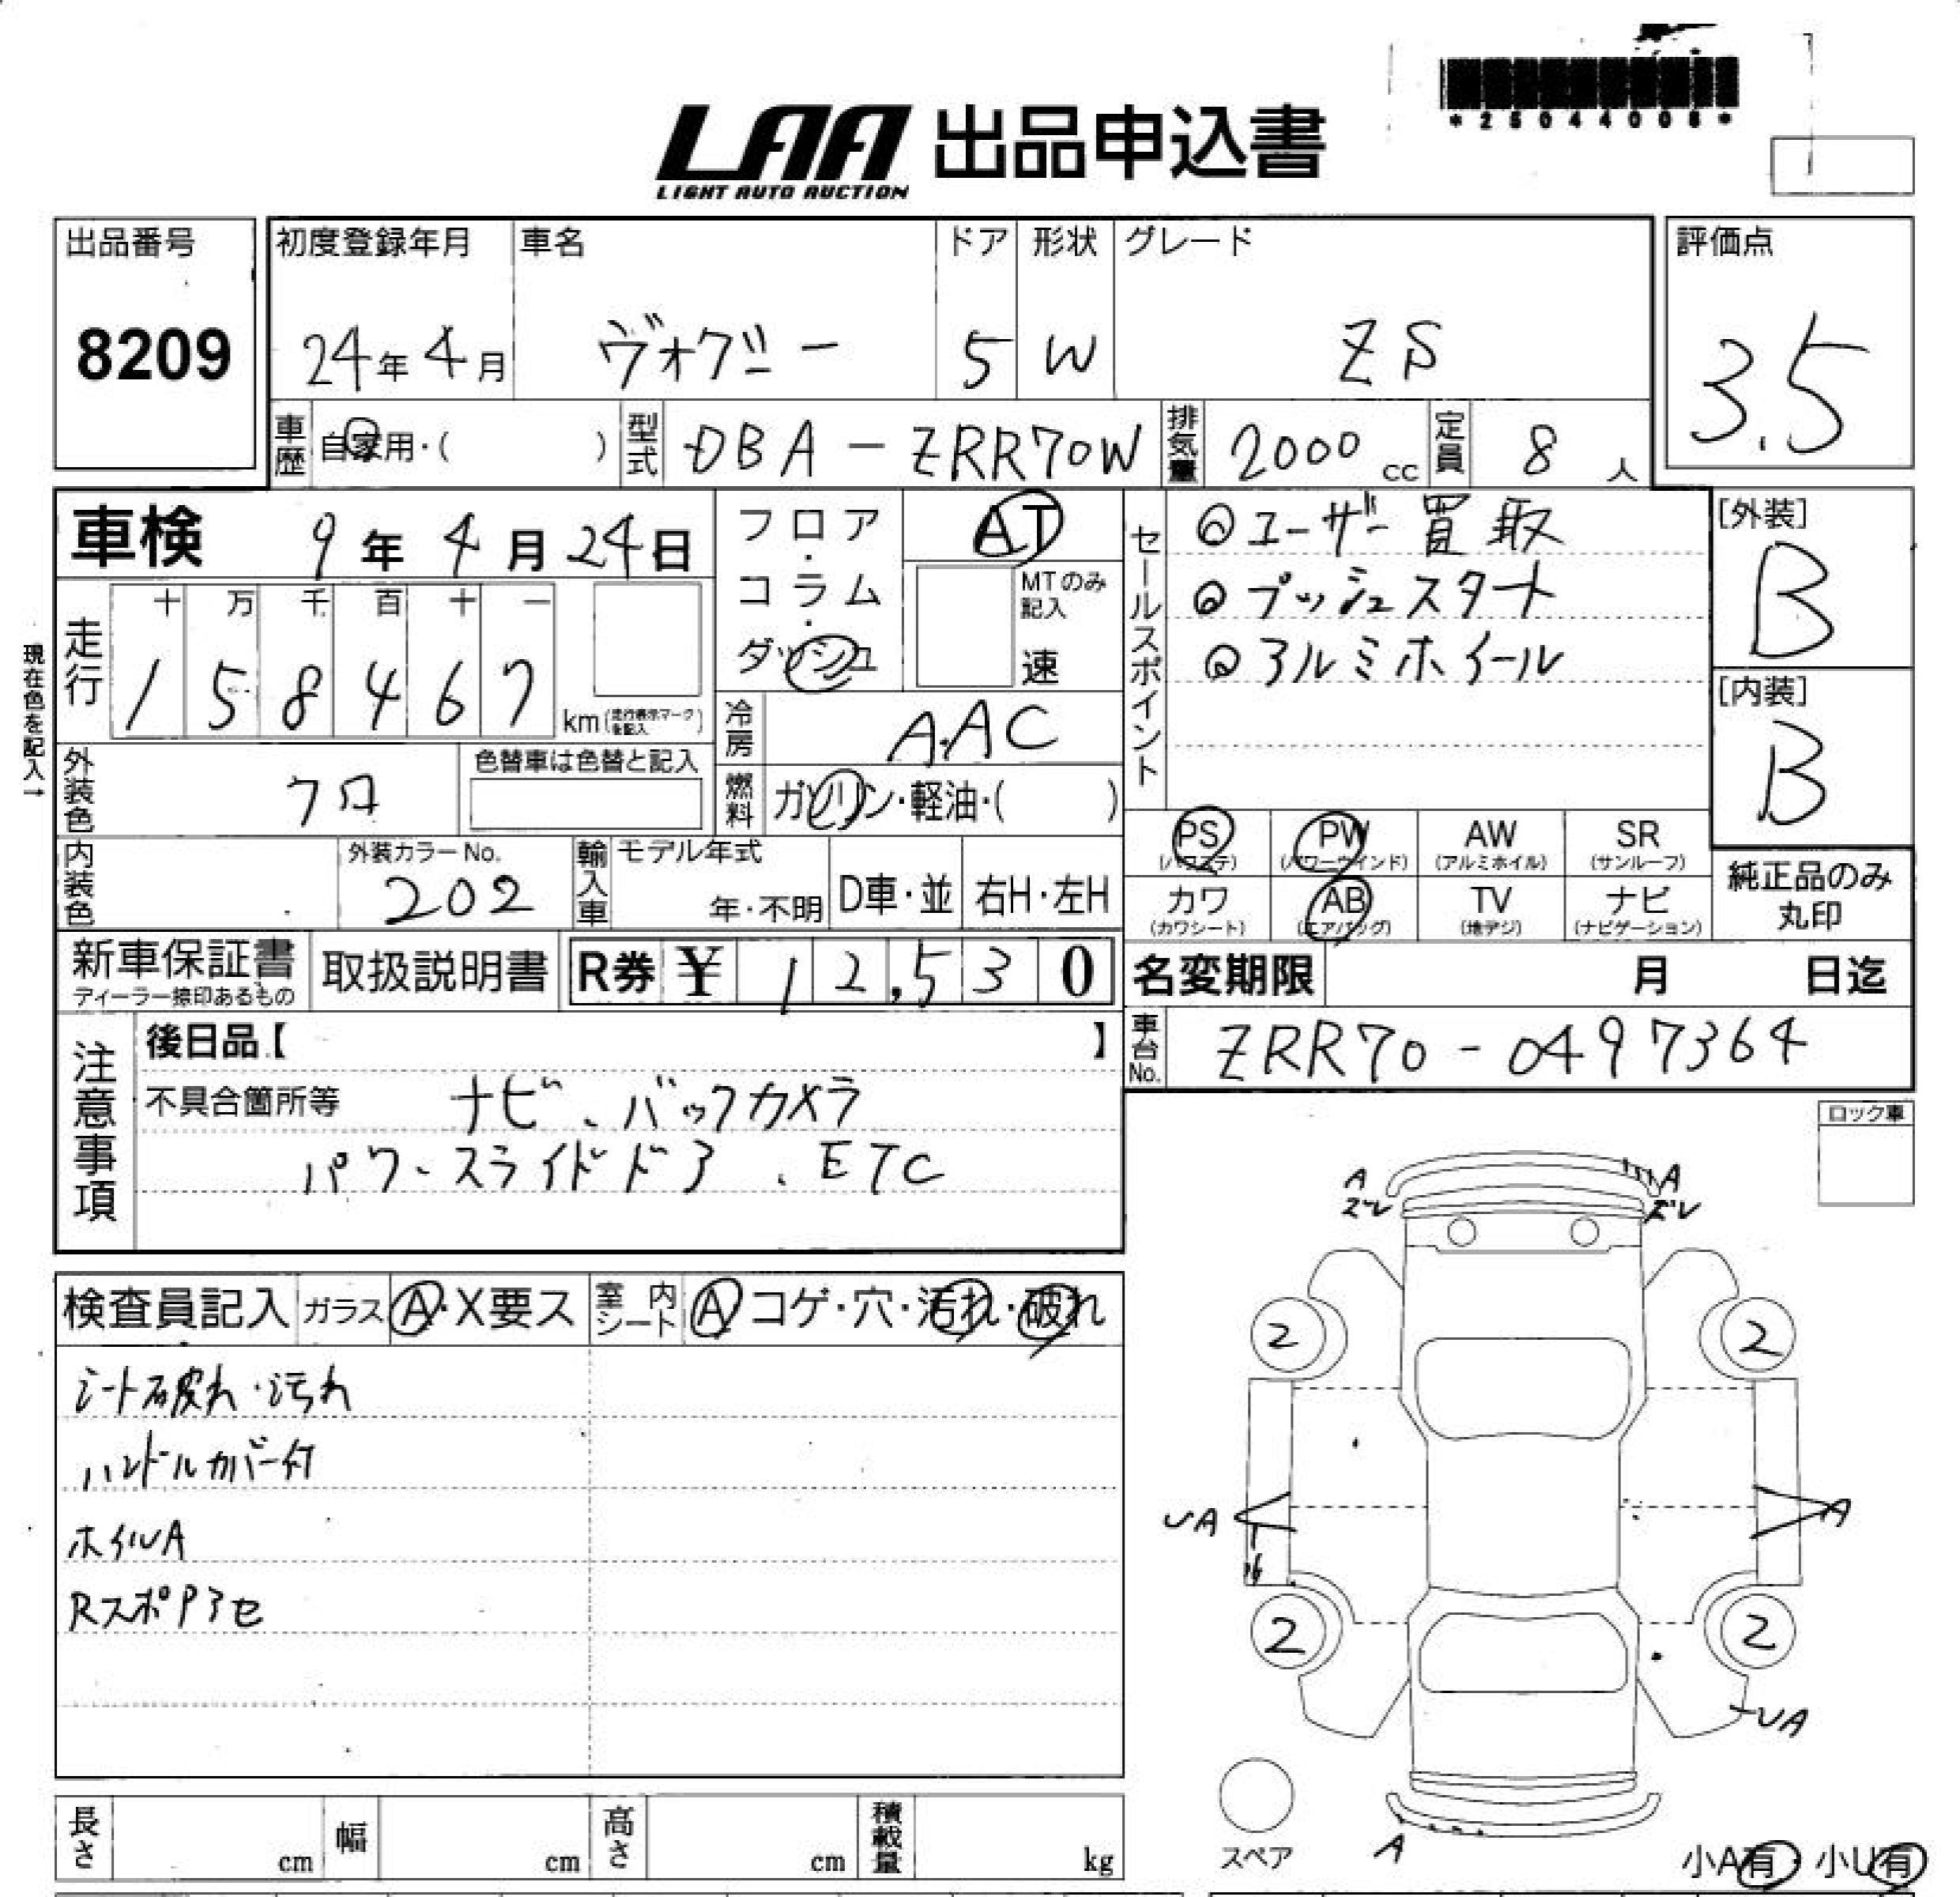 *25044008*
LAA 出品申込書
LIGHT AUTO AUCTION
出品番号 初度登録年月 車名 ドア 形状 グレード 評価点
8209 24年4月 ヴォクシー 5 W ZS 3.5
車歴 自家用・( ) 型式 DBA-ZRR70W 排気量 2000cc 定員 8人
車検 9年4月24日 フロア・コラム・ダッシュ AT
MTのみ記入 速
セールスポイント
◎ユーザー買取
◎プッシュスタート
◎アルミホイール
[外装] B
[内装] B
現在色を記入→
走行 十 万 千 百 十 一
158467 km(走行表示マークを記入)
冷房 AAC
外装色 クロ 色替車は色替と記入
燃料 ガソリン・軽油・( )
PS (パワステ) PW (パワーウインド) AW (アルミホイル) SR (サンルーフ)
カワ (カワシート) AB (エアバッグ) TV (地デジ) ナビ (ナビゲーション)
純正品のみ丸印
内装色 外装カラーNo. 202 輸入車 モデル年式 年・不明 D車・並 右H・左H
新車保証書 ディーラー捺印あるもの 取扱説明書 R券 ¥12,530
名変期限 月 日迄
車台No. ZRR70-0497364
注意事項
後日品【 】
不具合箇所等 ナビ、バックカメラ
パワースライドドア、ETC
ロック車
検査員記入 ガラス A・X要ス 室内シート A コゲ・穴・汚れ・破れ
シート破れ・汚れ
ハンドルカバー付
ホイルA
RスポPアセ
A A
ズレ ズレ
2 2
UA A
2 2
UA
A
スペア
小A有・小U有
長さ cm 幅 cm 高さ cm 積載量 kg